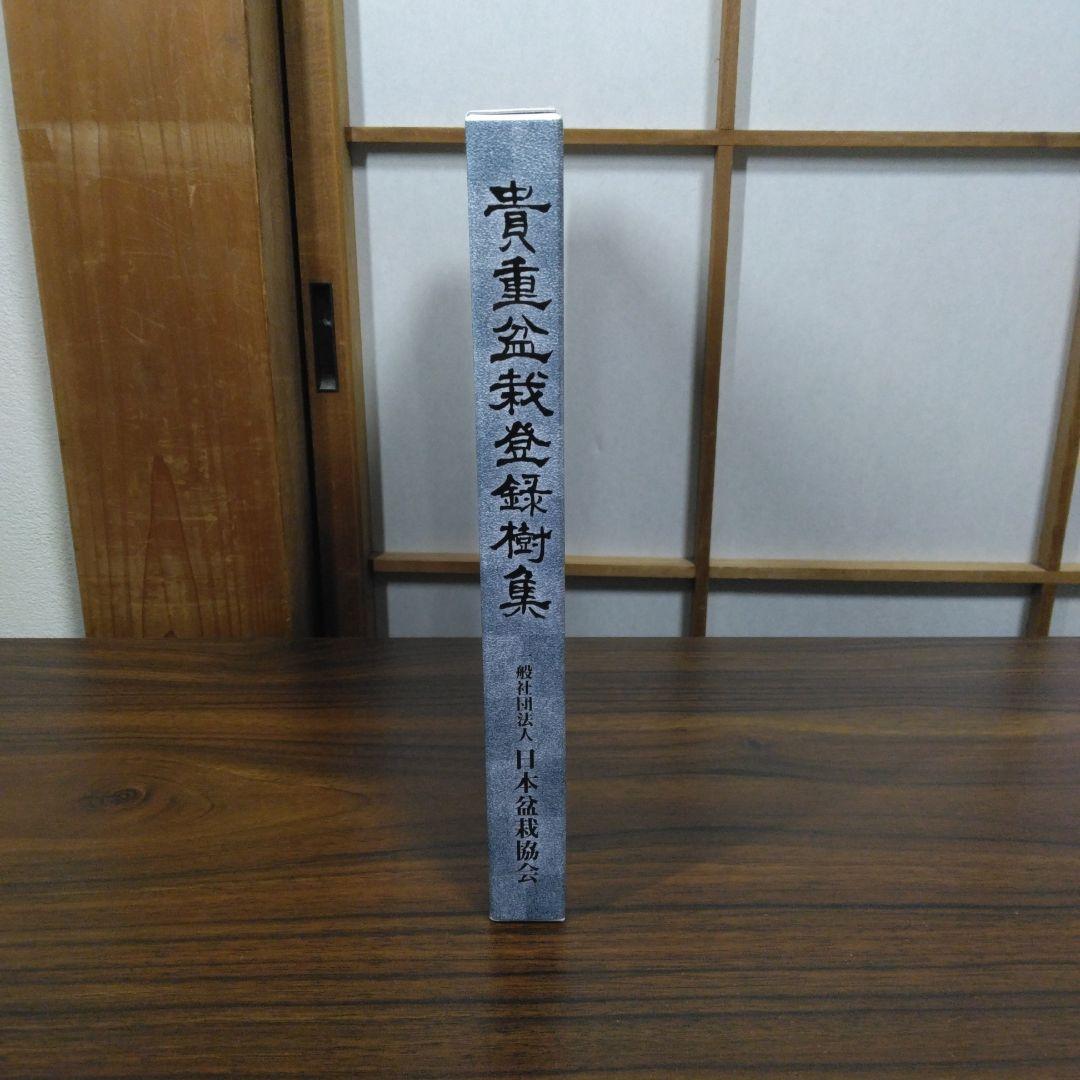 貴重盆栽登録樹集
一般社団法人 日本盆栽協会